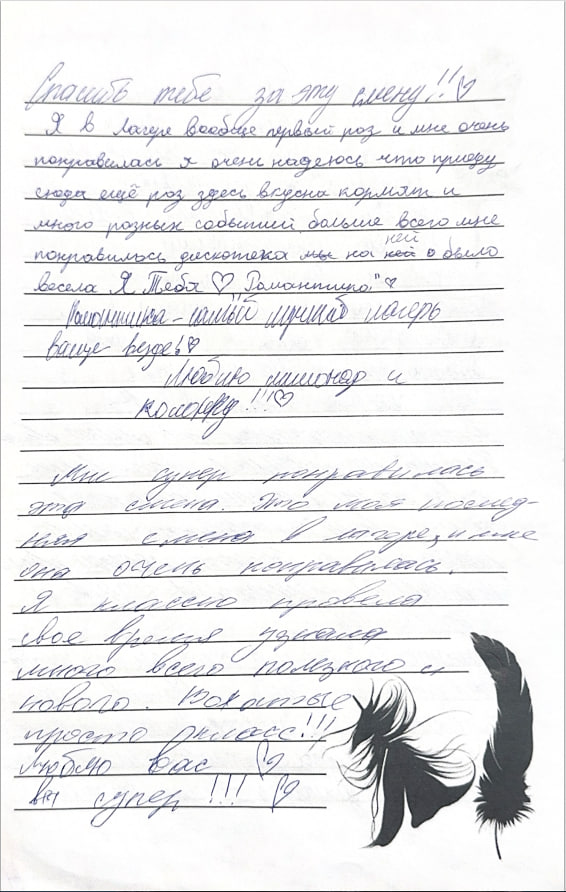 Спасибо тебе за эту смену!!♡
Я в лагере вообще первый раз и мне очень
понравилась я очень надеюсь что приеду
сюда ещё раз здесь вкусна кормят и
много разных событий больше всего мне
понравилось дискотека на ней было
весела Я Тебя ♡ Романтика!"♡
Романтика - самый лучший лагерь
ваще везде!♡
Люблю и
!!!♡
Мне супер понравилась
эта смена. Это моя послед-
няя смена в лагере, и мне
она очень понравилась.
Я классно провела
свое время узнала
много всего полезного и
нового. Вожатые
просто класс!!!
люблю вас ♡
вы супер!!! ♡